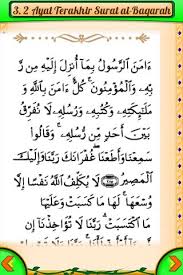 3. 2 Ayat Terakhir Surat al-Baqarah
ءَامَنَ ٱلرَّسُولُ بِمَآ أُنزِلَ إِلَيْهِ مِن رَّبِّهِ
وَٱلْمُؤْمِنُونَ ۚ كُلٌّ ءَامَنَ بِٱللَّهِ
وَمَلَٰٓئِكَتِهِۦ وَكُتُبِهِۦ وَرُسُلِهِۦ لَا نُفَرِّقُ
بَيْنَ أَحَدٍ مِّن رُّسُلِهِۦ ۚ وَقَالُوا۟
سَمِعْنَا وَأَطَعْنَا ۖ غُفْرَانَكَ رَبَّنَا وَإِلَيْكَ
ٱلْمَصِيرُ ۝ لَا يُكَلِّفُ ٱللَّهُ نَفْسًا إِلَّا
وُسْعَهَا ۚ لَهَا مَا كَسَبَتْ وَعَلَيْهَا
مَا ٱكْتَسَبَتْ ۗ رَبَّنَا لَا تُؤَاخِذْنَآ إِن